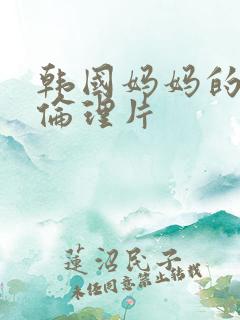 韩国妈妈的
倫理片
蓮沼民子
未经同意禁止转载